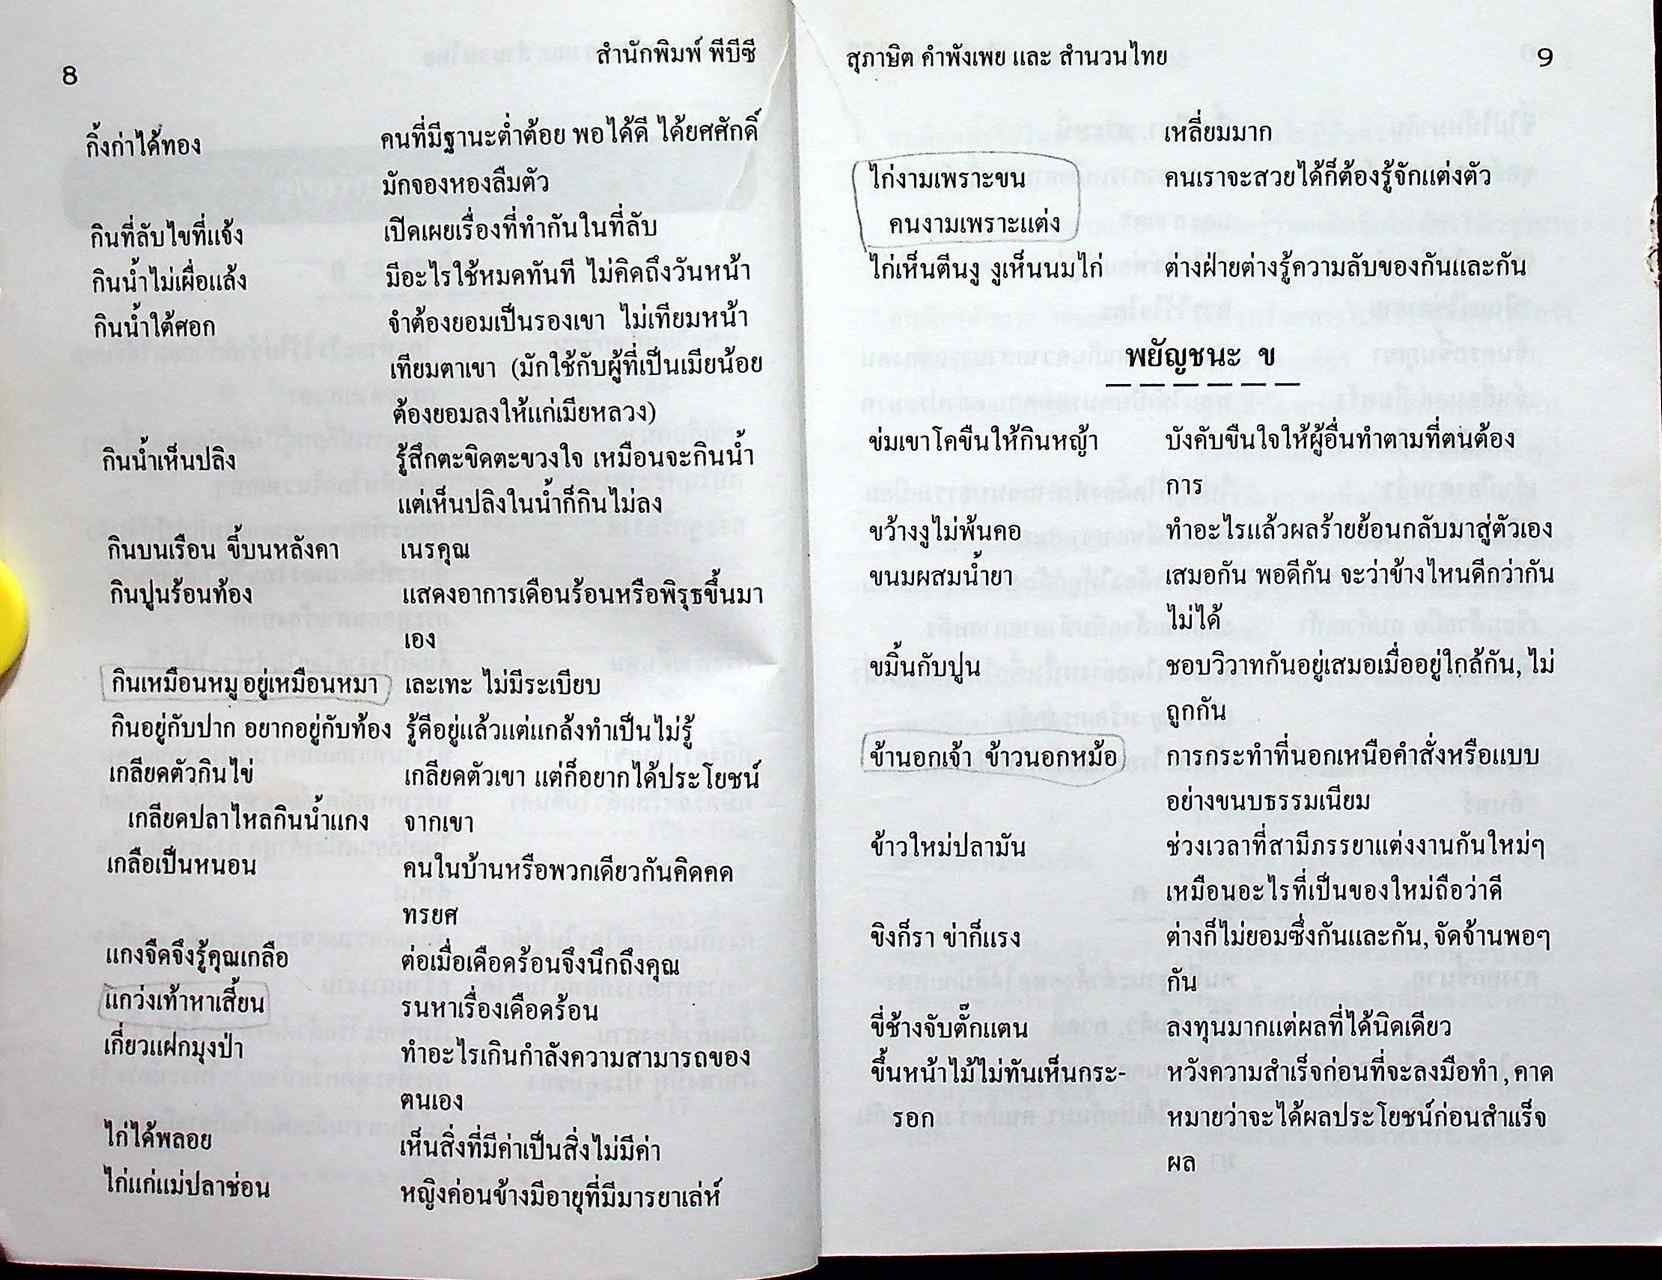 8
สำนักพิมพ์ พีบีซี
กิ้งก่าได้ทอง คนที่มีฐานะต่ำต้อย พอได้ดี ได้ยศศักดิ์
มักจองหองลืมตัว
กินที่ลับไขที่แจ้ง เปิดเผยเรื่องที่ทำกันในที่ลับ
กินน้ำไม่เผื่อแล้ง มีอะไรใช้หมดทันที ไม่คิดถึงวันหน้า
กินน้ำใต้ศอก จำต้องยอมเป็นรองเขา ไม่เทียมหน้า
เทียมตาเขา (มักใช้กับผู้ที่เป็นเมียน้อย
ต้องยอมลงให้แก่เมียหลวง)
กินน้ำเห็นปลิง รู้สึกตะขิดตะขวงใจ เหมือนจะกินน้ำ
แต่เห็นปลิงในน้ำก็กินไม่ลง
กินบนเรือน ขี้บนหลังคา เนรคุณ
กินปูนร้อนท้อง แสดงอาการเดือนร้อนหรือพิรุธขึ้นมา
เอง
กินเหมือนหมู อยู่เหมือนหมา เละเทะ ไม่มีระเบียบ
กินอยู่กับปาก อยากอยู่กับท้อง รู้ดีอยู่แล้วแต่แกล้งทำเป็นไม่รู้
เกลียดตัวกินไข่ เกลียดตัวเขา แต่ก็อยากได้ประโยชน์
เกลียดปลาไหลกินน้ำแกง จากเขา
เกลือเป็นหนอน คนในบ้านหรือพวกเดียวกันคิดคด
ทรยศ
แกงจืดจึงรู้คุณเกลือ ต่อเมื่อเดือดร้อนจึงนึกถึงคุณ
แกว่งเท้าหาเสี้ยน รนหาเรื่องเดือดร้อน
เกี่ยวแฝกมุงป่า ทำอะไรเกินกำลังความสามารถของ
ตนเอง
ไก่ได้พลอย เห็นสิ่งที่มีค่าเป็นสิ่งไม่มีค่า
ไก่แก่แม่ปลาช่อน หญิงค่อนข้างมีอายุที่มีมารยาเล่ห์
สุภาษิต คำพังเพย และ สำนวนไทย
9
เหลี่ยมมาก
ไก่งามเพราะขน คนเราจะสวยได้ก็ต้องรู้จักแต่งตัว
คนงามเพราะแต่ง
ไก่เห็นตีนงู งูเห็นนมไก่ ต่างฝ่ายต่างรู้ความลับของกันและกัน
พยัญชนะ ข
ข่มเขาโคขืนให้กินหญ้า บังคับขืนใจให้ผู้อื่นทำตามที่ตนต้อง
การ
ขว้างงูไม่พ้นคอ ทำอะไรแล้วผลร้ายย้อนกลับมาสู่ตัวเอง
ขนมผสมน้ำยา เสมอกัน พอดีกัน จะว่าข้างไหนดีกว่ากัน
ไม่ได้
ขมิ้นกับปูน ชอบวิวาทกันอยู่เสมอเมื่ออยู่ใกล้กัน, ไม่
ถูกกัน
ข้านอกเจ้า ข้าวนอกหม้อ การกระทำที่นอกเหนือคำสั่งหรือแบบ
อย่างขนบธรรมเนียม
ข้าวใหม่ปลามัน ช่วงเวลาที่สามีภรรยาแต่งงานกันใหม่ๆ
เหมือนอะไรที่เป็นของใหม่ถือว่าดี
ขิงก็รา ข่าก็แรง ต่างก็ไม่ยอมซึ่งกันและกัน, จัดจ้านพอๆ
กัน
ขี่ช้างจับตั๊กแตน ลงทุนมากแต่ผลที่ได้นิดเดียว
ขึ้นหน้าไม้ไม่ทันเห็นกระ- หวังความสำเร็จก่อนที่จะลงมือทำ , คาด
รอก หมายว่าจะได้ผลประโยชน์ก่อนสำแร็จ
ผล